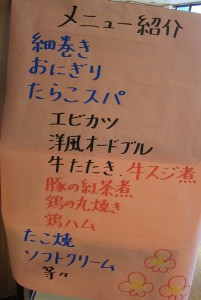 メニュー紹介
細巻き
おにぎり
たらこスパ
エビカツ
洋風オードブル
牛たたき、牛スジ煮
豚の紅茶煮
鶏の丸焼き
鶏ハム
たこ焼
ソフトクリーム
等々